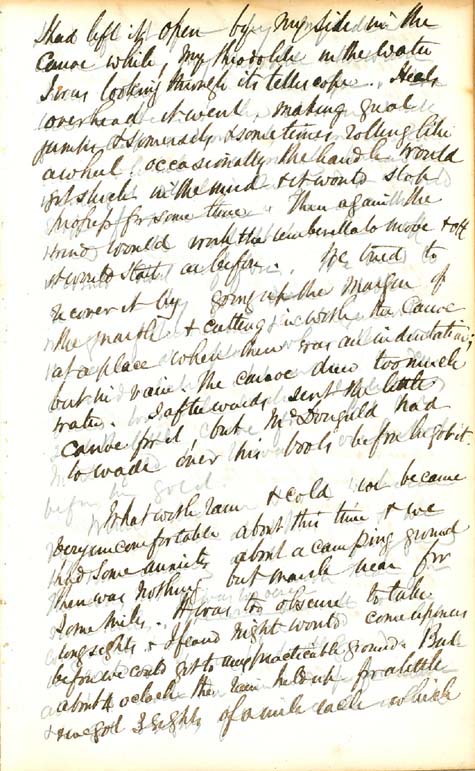 I had left it open by my side in the
canoe while, my theodolite in the water
I was looking through its telescope. Heels
overhead it went, making great
jumps & somersets & sometimes rolling like
a wheel. occasionally the handle would
get stuck in the mud & it would stop
progress for some time. Then again the
wind would work the umberella to move & off
it would start as before. We tried to
recover it by going up the margin of
the marsh & cutting in with the canoe
at a place where there was an indentation;
but in vain the canoe drew too much
water. I afterwards sent the little
canoe for it but McDougald had
to wade over his boots before he got it.
What with rain & cold we became
very uncomfortable about this time & we
had some anxiety about a camping ground
there was nothing but marsh near for
some miles. It was too obscure to take
long sights & I feared night would come upon us
before we could get to any practicable ground. But
about 4 oclock the rain held up for a little
& we got 2 sights of a mile each which